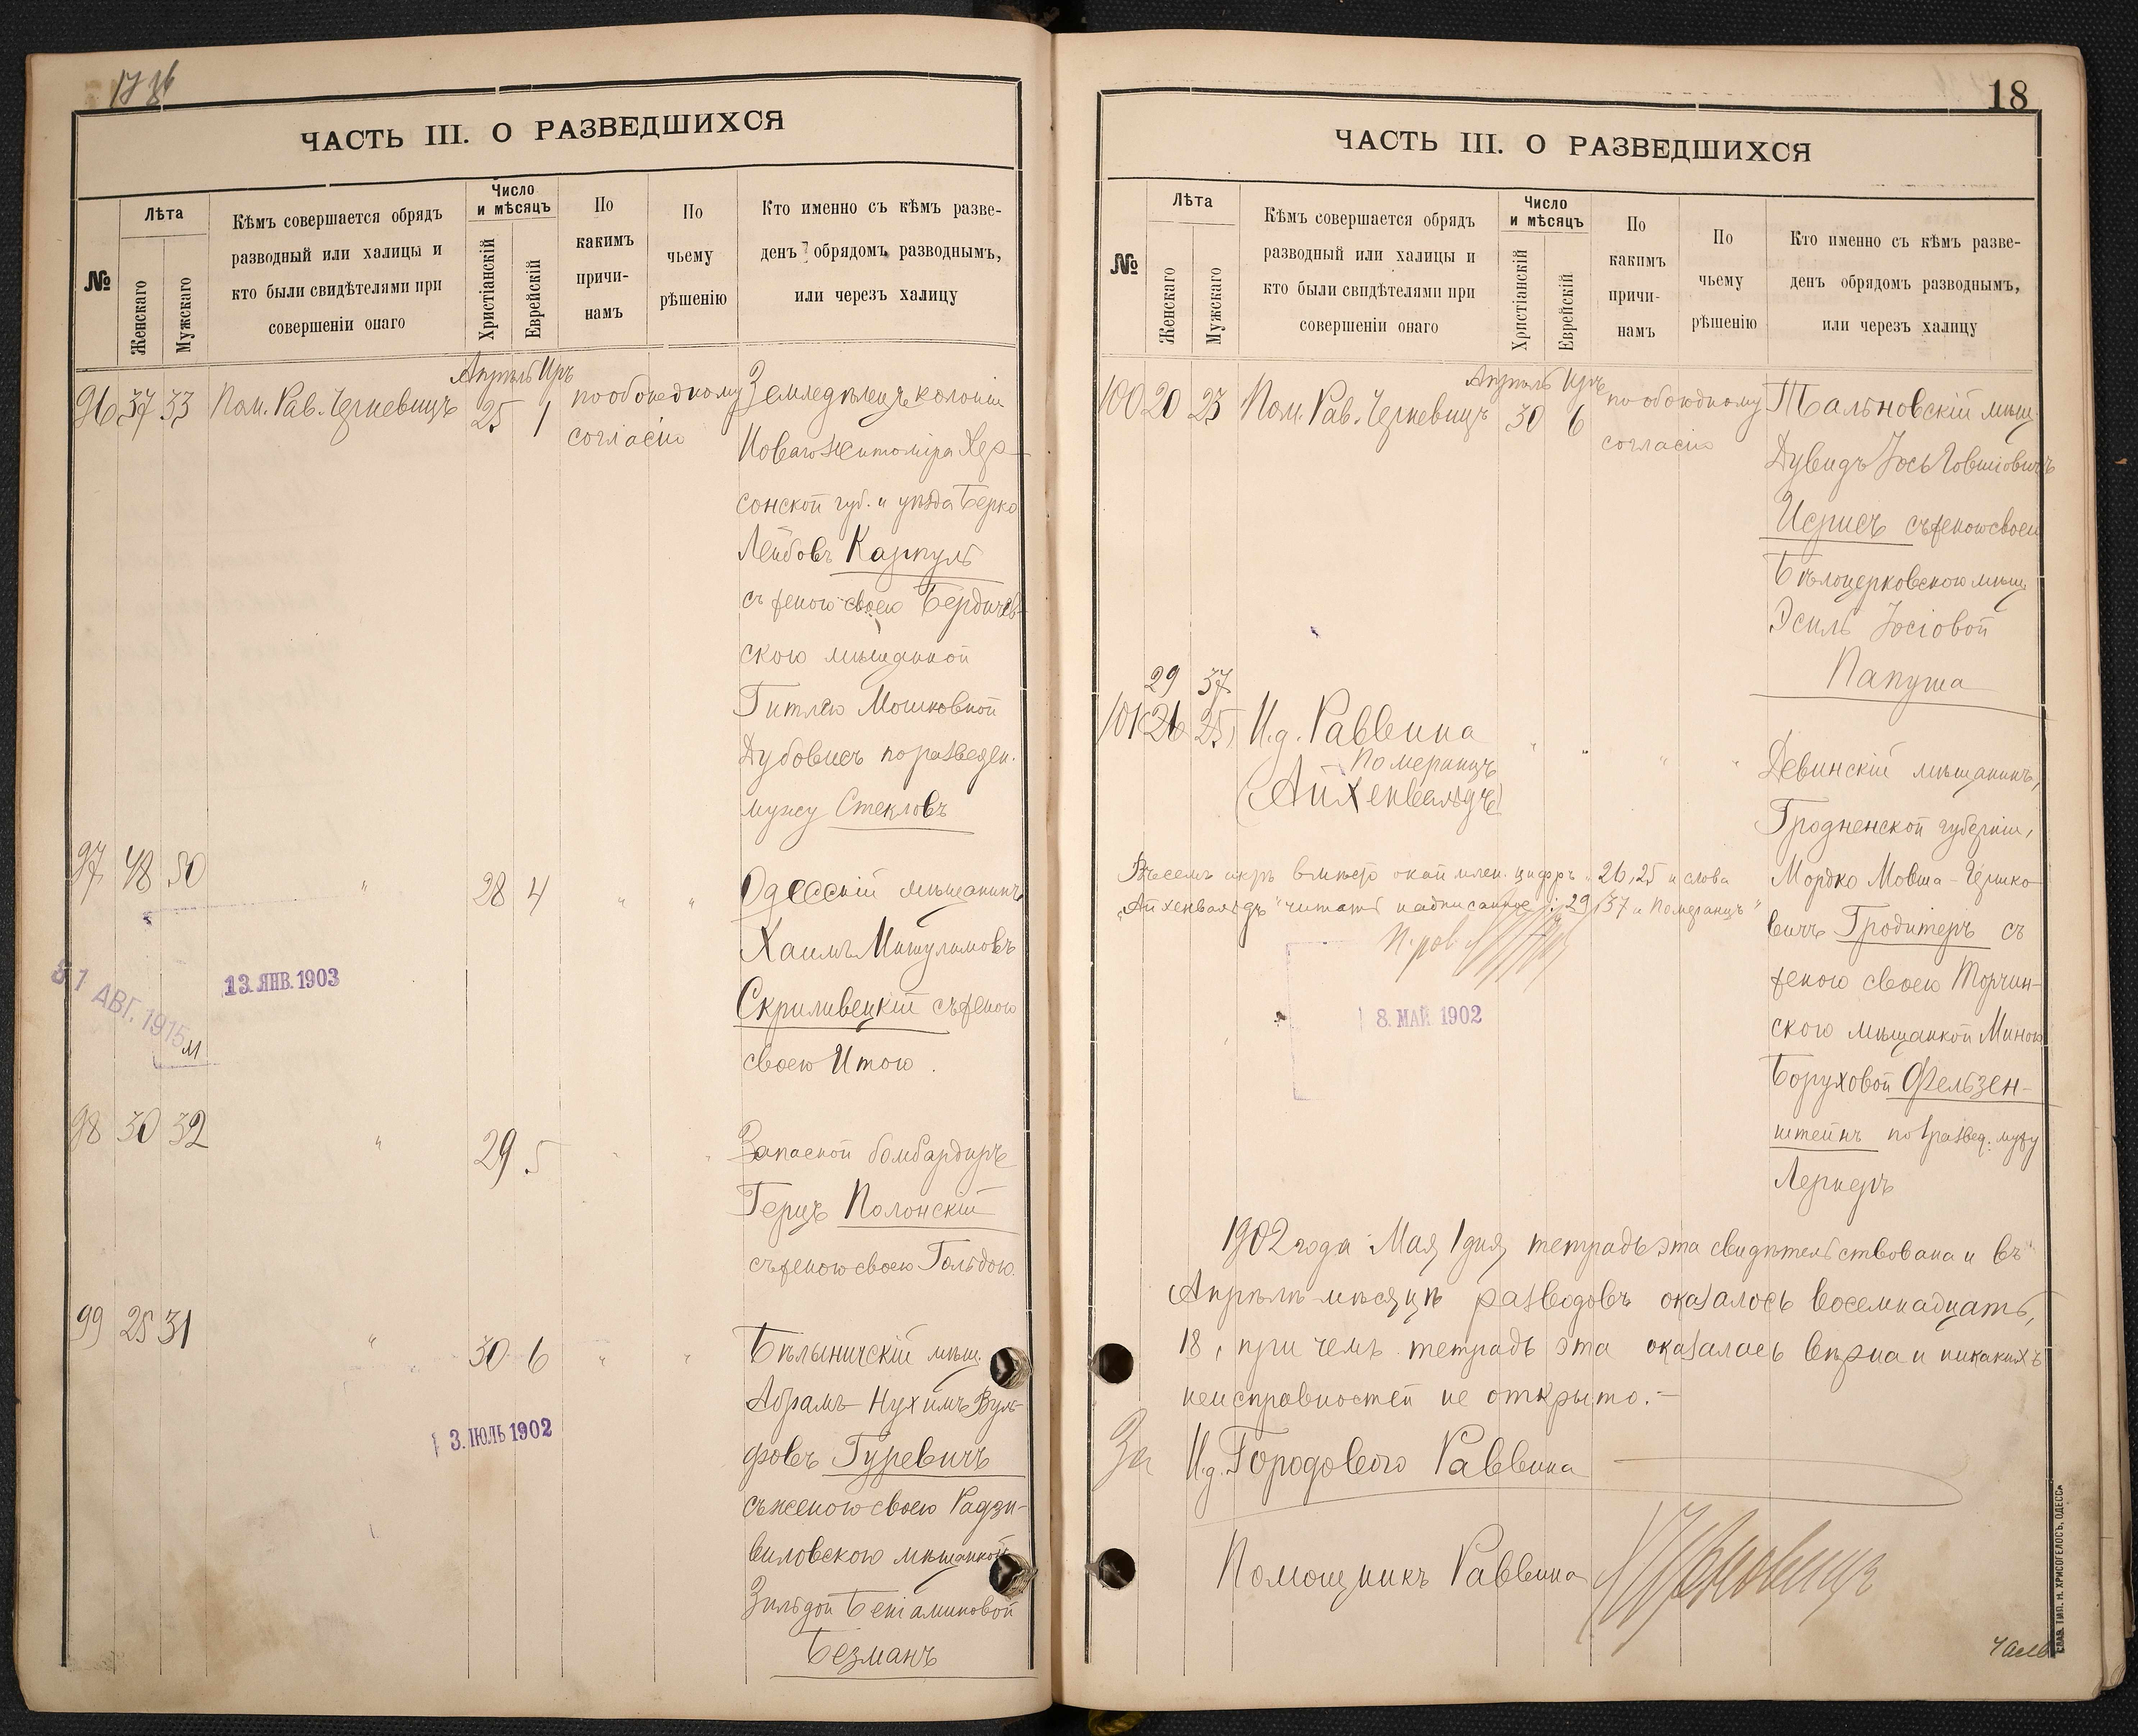 ЧАСТЬ III. О РАЗВЕДШИХСЯ
№
Лѣта
Женскаго
Мужскаго
Кѣмъ совершается обрядъ
разводный или халицы и
кто были свидѣтелями при
совершеніи онаго
Число
и мѣсяцъ
Христіанскій
Еврейскій
По
какимъ
причи-
намъ
По
чьему
рѣшенію
Кто именно съ кѣмъ разве-
денъ обрядомъ разводнымъ,
или черезъ халицу
Апрѣль Иръ
96 37 33 Пом. Рав. Черневицъ 25 1 по обоюдному
согласію
Земледѣлецъ колоніи
Новаго Житоміра Хер-
сонской губ. и уѣзда Берко
Лейбовъ Карпуль
съ женою своею Бердичев-
скою мѣщанкой
Гитлею Мошковной
Дубовисъ по разведен.
мужу Стекловъ
97 48 50 " 28 4 " "
Одесскій мѣщанинъ
Хаимъ Мишулимовъ
Скриливецкій съ женою
своею Итою.
31 АВГ. 1915
13. ЯНВ. 1903
98 30 32 " 29 5 " "
Запасной бомбардиръ
Герцъ Полонскій
съ женою своею Гольдою.
99 25 31 " 30 6 " "
Бѣлыничскій мѣщ.
Абрамъ-Нухимъ Вуль-
фовъ Гуревичъ
съ женою своею Радзи-
виловскою мѣщанкой
Зильдой Беніаминовой
Безманъ
3. ІЮЛЬ 1902
18
ЧАСТЬ III. О РАЗВЕДШИХСЯ
№
Лѣта
Женскаго
Мужскаго
Кѣмъ совершается обрядъ
разводный или халицы и
кто были свидѣтелями при
совершеніи онаго
Число
и мѣсяцъ
Христіанскій
Еврейскій
По
какимъ
причи-
намъ
По
чьему
рѣшенію
Кто именно съ кѣмъ разве-
денъ обрядомъ разводнымъ,
или черезъ халицу
Апрѣль Иръ
100 20 23 Пом. Рав. Черневицъ 30 6 по обоюдному
согласію
Тальновскій мѣщ.
Дувидъ Іось Іовшіовичъ
съ женою своею
Бѣлоцерковскою мѣщ.
Эсиль Іосіовой
Папуша
29 37
101 26 25 И.д. Раввина " " " "
Померанцъ
(Айхенвальдъ)
Девинскій мѣщанинъ,
Гродненской губерніи,
Мордко Мовша-Гершко-
вичъ Гродитеръ съ
женою своею Торчин-
скою мѣщанкой Миною
Боруховой Фельзен-
штейнъ по развед. мужу
Лернеръ
цифръ "26, 25 и слова
"Айхенвальдъ" читать надписанное: "29, 37 и Померанцъ"
8. МАЙ 1902
1902 года Мая 1 дня тетрадь эта свидѣтельствована и въ
Апрѣлѣ мѣсяцѣ разводовъ оказалось восемнадцать,
18, при чемъ тетрадь эта оказалась вѣрна и никакихъ
неисправностей не открыто.-
За И.д. Городового Раввина
Помощникъ Раввина Черневицъ
СЛАВ. ТИП. Н. ХРИСОГЕЛОСЪ, ОДЕССА